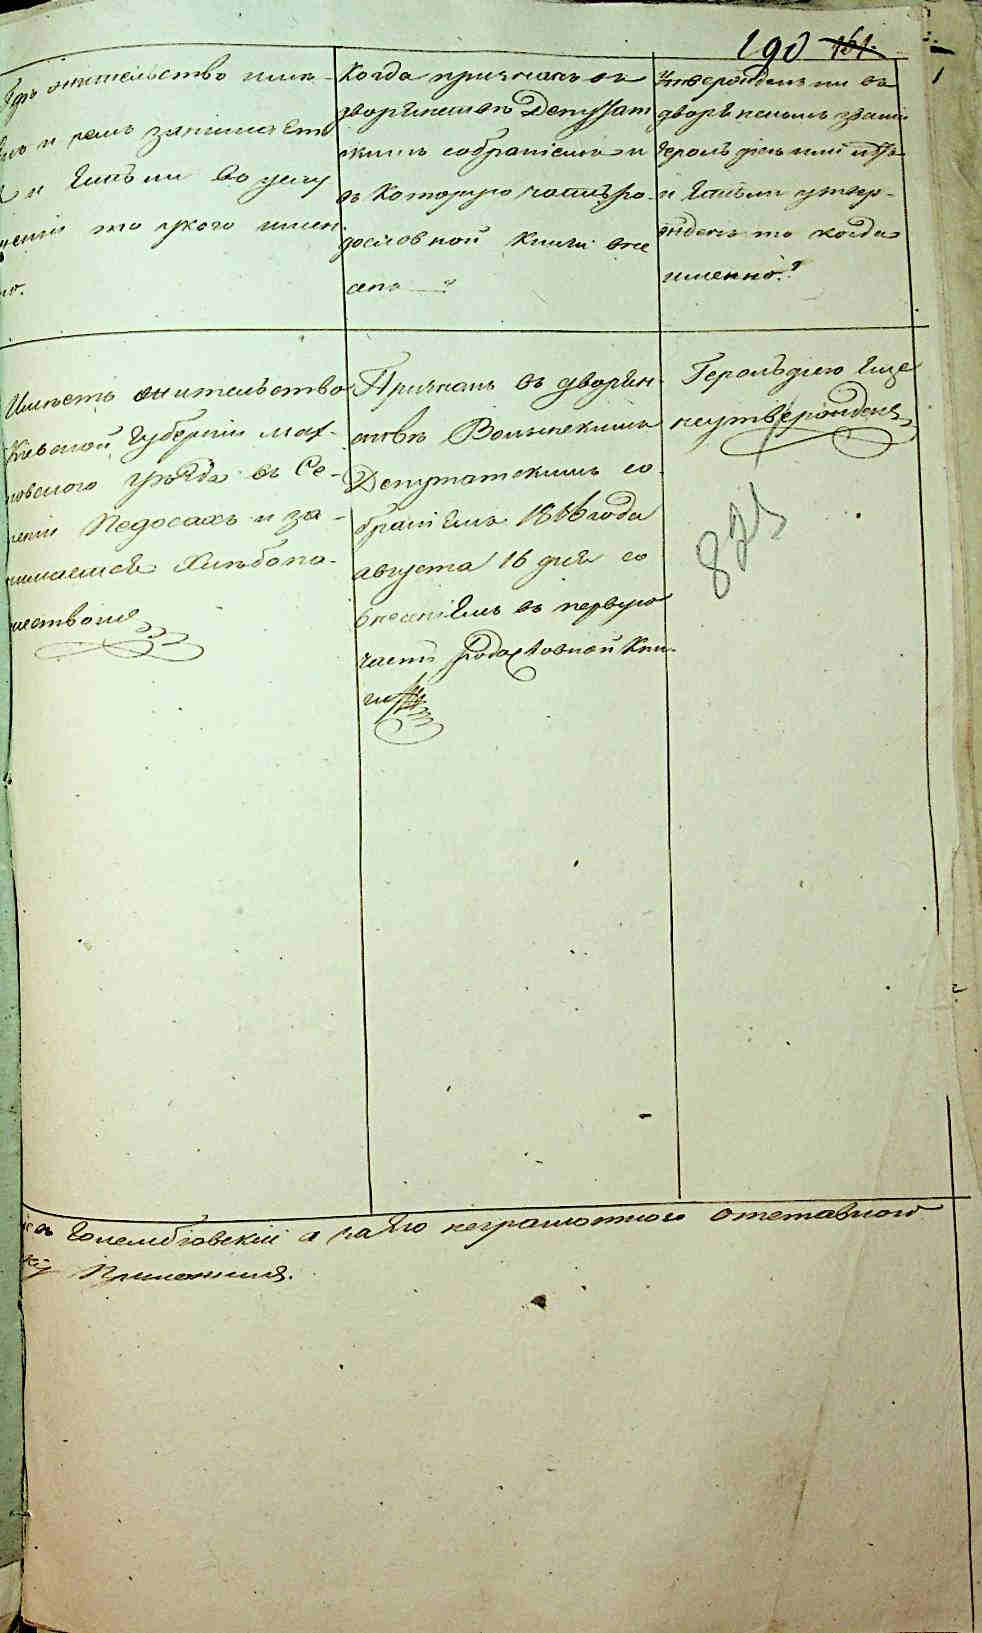 190 161.
Где жительство име-
и чем занимает
и Естьли въ услу
то у кого имен
но.
Когда признанъ въ
дворянствѣ Депутат
скимъ собраніемъ и
въ Которую часть ро-
дословной Книги вне
сенъ ?
Утвержденъ ли въ
дворянскомъ званіи
Герольдіею или нѣтъ
и Естьли утвер-
жденъ то когда
именно?
Имѣетъ жительство
Кіевской Губерніи Мах-
новского уѣзда въ Се-
леніи Педосахъ и за-
нимается Хлѣбопа-
шествомъ
Признанъ въ дворян-
ствѣ Волынскимъ
Депутатскимъ со-
браніемъ года
августа 16 дня со
внесеніемъ въ первую
часть Родословной Кни-
ги
Герольдіею Еще
неутвержденъ
въ Голембіовскій а за Его неграмотного отставного